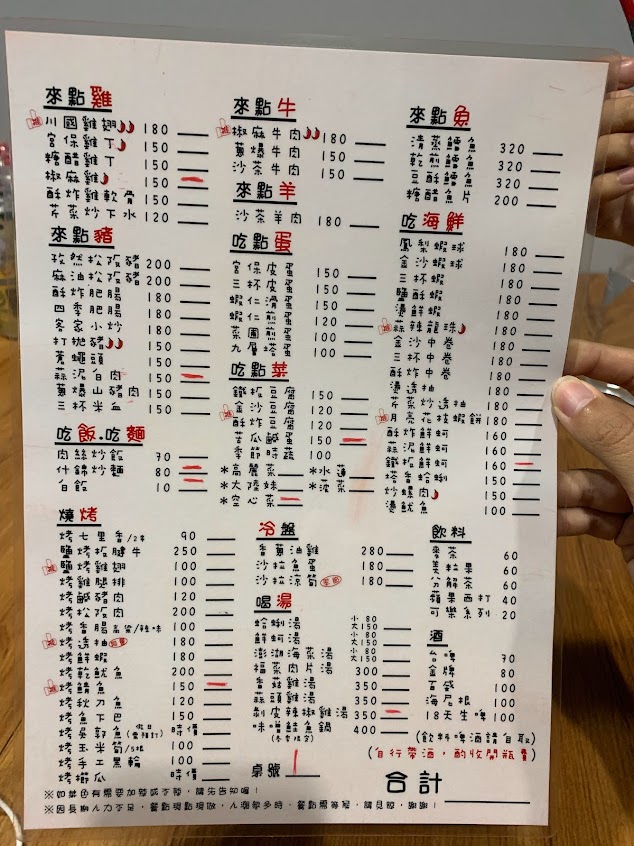 來點雞
川國雞翅 180
宮保雞丁 150
糖醋雞丁 150
椒麻雞 150
酥炸雞軟骨 150
芹菜炒下水 120
來點豬
孜然松阪豬 200
麻油松阪豬 200
酥炸肥腸 180
四季肥腸 180
客家小炒 180
打拋豬 150
蒼蠅頭 150
蒜泥白肉 150
蔥爆山豬肉 150
三杯米血 150
吃飯.吃麵
肉絲炒飯 70
什錦炒麵 80
白飯 10
來點牛
椒麻牛肉 180
蔥爆牛肉 150
沙茶牛肉 150
來點羊
沙茶羊肉 180
吃點蛋
宮保皮蛋 150
三杯皮蛋 150
蝦仁滑蛋 150
蝦仁煎蛋 120
菜圃煎蛋 100
九層塔蛋 100
吃點菜
鐵板豆腐 150
金沙豆腐 120
酥炸鹹 120
苦瓜鹹蛋 150
季節時蔬 100
*高麗菜 *水蓮
*大陸妹 *菠菜
*空心菜
來點魚
清蒸鱈魚 320
乾煎鱈魚 320
豆酥鱈魚 320
糖醋魚片 200
吃海鮮
鳳梨蝦球 180
金沙蝦球 180
三杯蝦 180
鹽酥蝦 180
燙鮮蝦 180
蒜辣龍珠 180
金沙中卷 180
三杯中卷 180
酥炸中卷 180
燙透抽 180
芹菜炒透抽 180
月亮花枝蝦餅 180
酥炸鮮蚵 160
蒜泥鮮蚵 160
鐵板鮮蚵 160
塔香蛤蜊 150
炒螺肉 150
燙魷魚 100
燒烤
烤七里香/2串 90
鹽烤板腱牛 250
鹽烤雞翅 100
烤雞腿排 100
烤鹹豬肉 120
烤松阪肉 200
烤香腸 高粱/辣味 100
烤透抽 180
烤鮮蝦 180
烤乾魷魚 200
烤鯖魚 150
烤秋刀魚 120
烤魚下巴 150
烤吳郭魚 時價
烤玉米筍/5根 100
烤手工黑輪 100
烤櫛瓜 時價
冷盤
香蔥油雞 280
沙拉魚蛋 180
沙拉涼筍 180
喝湯
蛤蜊湯 小80 大150
鮮蚵湯 小80 大150
澎湖海菜湯 小80 大150
福菜肉片湯 300
香菇雞湯 350
蒜頭雞湯 350
剝皮辣椒雞湯 350
味噌鮭魚鍋 400
桌號
飲料
麥茶 60
美粒果 60
分解茶 60
蘋果西打 40
可樂系列 20
酒
台啤 70
金牌 80
百威 100
海尼根 100
18天生啤 100
(飲料啤酒請自取)
(自行帶酒，酌收開瓶費)
合計
※如菜色有需要加辣或不辣，請先告知喔！
※因長輩人力不足，餐點現點現做，人潮較多時，餐點需等候，請見諒，謝謝！